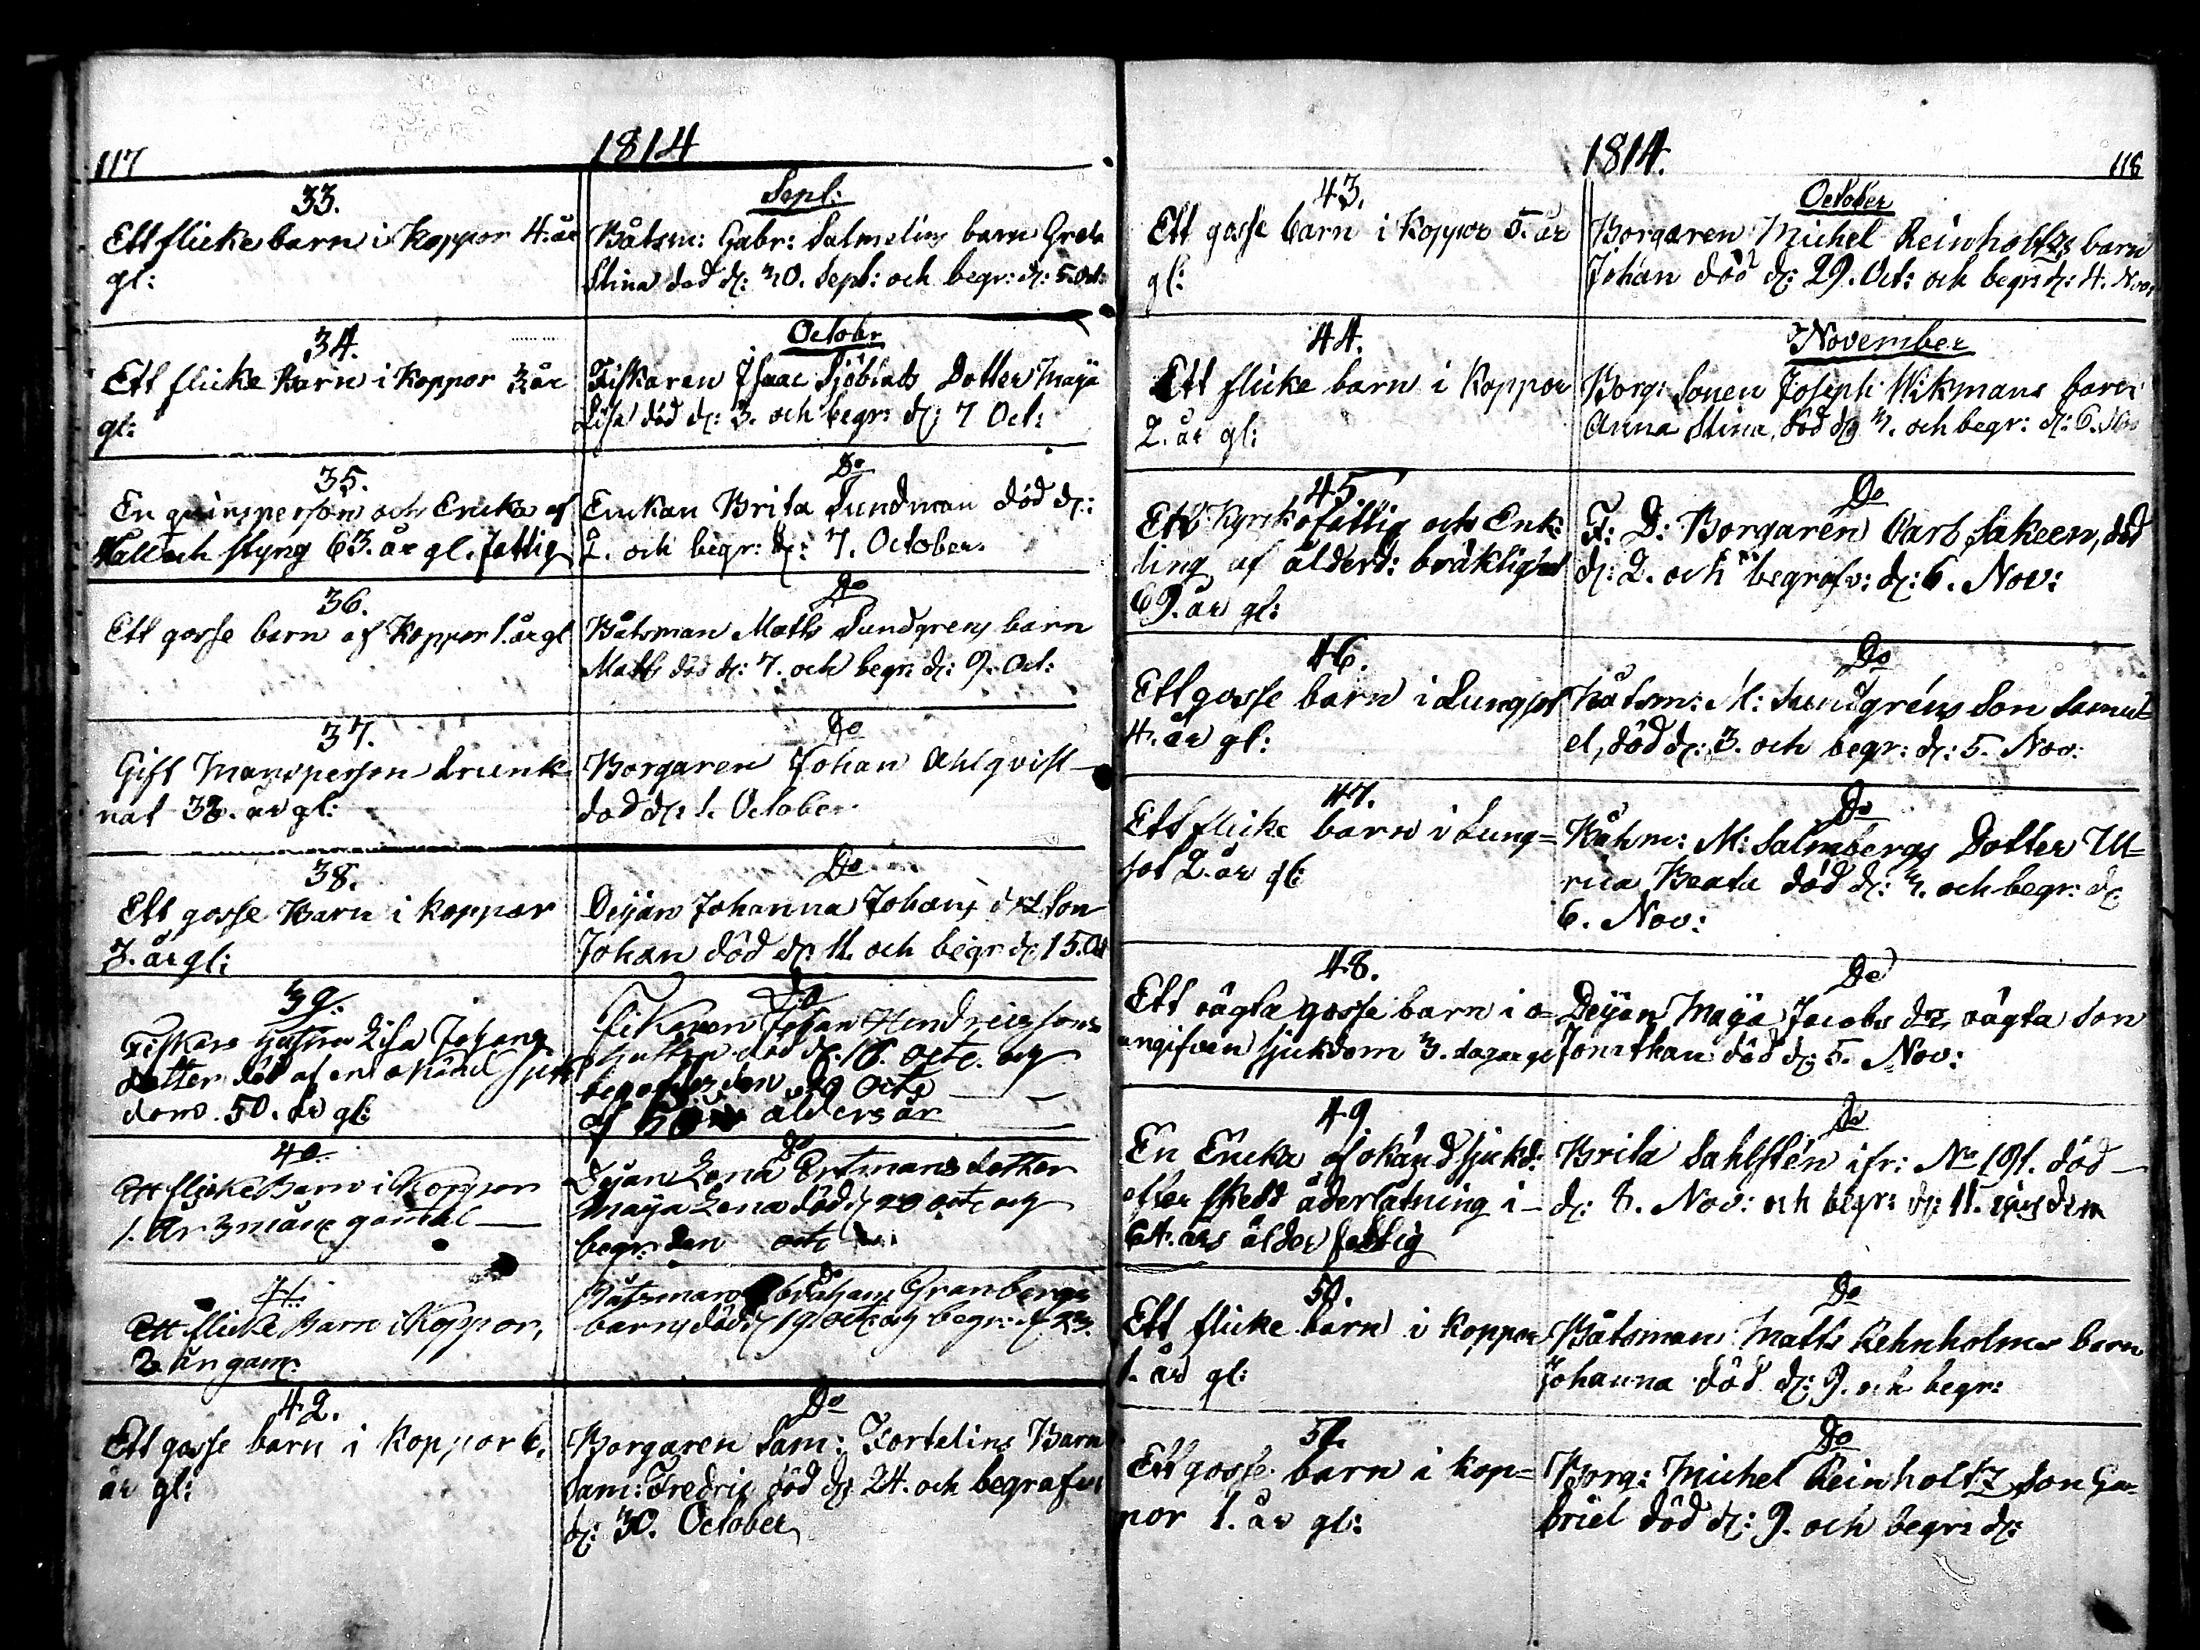 117
1814
33.
Ett flicke barn i Koppor 4. år
gl:
Sept:
Båtsm: Gabr: Salmelins barn Greta
Stina död d: 30. Sept: och begr: d: 5 Oct:
34.
Ett flicke Barn i Koppor 3 år
gl:
Octobr
Fiskaren Isaac Sjöblads Dotter Maja
Lisa död d: 3. och begr: d: 7 Oct:
35.
En qvinsperson och Encka af
Håll och styng 63. år gl. fattig
Do
Enckan Brita Sundman död d:
2. och begr: d: 7. October.
36.
Ett gosse barn af Koppor 1. år gl
Do
Båtsman Matts Sundgrens barn
Matts död d: 7. och begr: d: 9. Oct:
37.
Gift Mansperson drunk-
nat 38. år gl:
Do
Borgaren Johan Ahlqvist
död d: 1. October.
38.
Ett gosse Barn i koppor
7. år gl:
Do
Deijan Johanna Johans dr Son
Johan död d: 11. och begr d: 15. Oct
39.
Fiskars hustru Lisa Johans
dotter död af en okänd sjuk
dom 50. år gl:
Do
Fiskaren Johan Hendricssons
hustru död d. 16. octo. och
begrofs den 20 Octo
af 50 ålders år
40.
Ett flicke Barn i Koppor
1. År 3 mån: gamal
Do
Dejan Lena Ertmans dotter
Maja Lena död d 20 octo och
begr: den octo
41.
Ett flicke Barn i Koppor,
2 år gam:
Do
Båtsman Abraham Granbergs
barn död d 19 octo: och begr: d 23.
42.
Ett gosse barn i koppor 6.
år gl:
Do
Borgaren Sam: Fortelins Barn
Sam: Fredric död d: 24. och begrafvs
d: 30. October
1814.
118
43.
Ett gosse barn i koppor 5. år
gl:
October
Borgaren Michel Reinholtzs barn
Johan död d: 29. Oct: och begr: d: 4. Nov
44.
Ett flicke barn i Koppor
2. år gl:
November
Borg: Sonen Joseph Wikmans barn
Anna Stina, död d: 3. och begr: d: 6. Nov
45.
Ett Kyrkofattig och Enk-
ling af ålderd: bräklighet
69. år gl:
Do
F: D: Borgaren Carl Sakeen, död
d: 2. och begrafv: d: 6. Nov:
46.
Ett gosse barn i Lungsot
4. år gl:
Do
Båtsm: M: Sundgréns Son Samu-
el, död d: 3. och begr: d: 5. Nov:
47.
Ett flicke barn i Lung=
sot 2. år gl:
Do
Båtsm: M: Salmbergs Dotter Ul-
rica Beata död d: 3. och begr: d:
6. Nov:
48.
Ett oägta gosse barn i o-
angifven sjukdom 3. dagar gl
Do
Deijan Maja Jacobs dr oägta Son
Jonathan död d: 5. Nov:
49
En Encka af okänd sjukd:
efter skedd åderlåtning i
64. års ålder fattig
Do
Brita Sahlstén ifr: No 191. död
d: 8. Nov: och begr: d: 11. ejusdem
50.
Ett flicke barn i koppor
1. år gl:
Do
Båtsman Matts Rehnholms barn
Johanna död d: 9. och begr:
51.
Ett gosse barn i kop=
por 1. år gl:
Do
Borg: Michel Reinholtz Son Ga-
briel död d: 9. och begr: d: